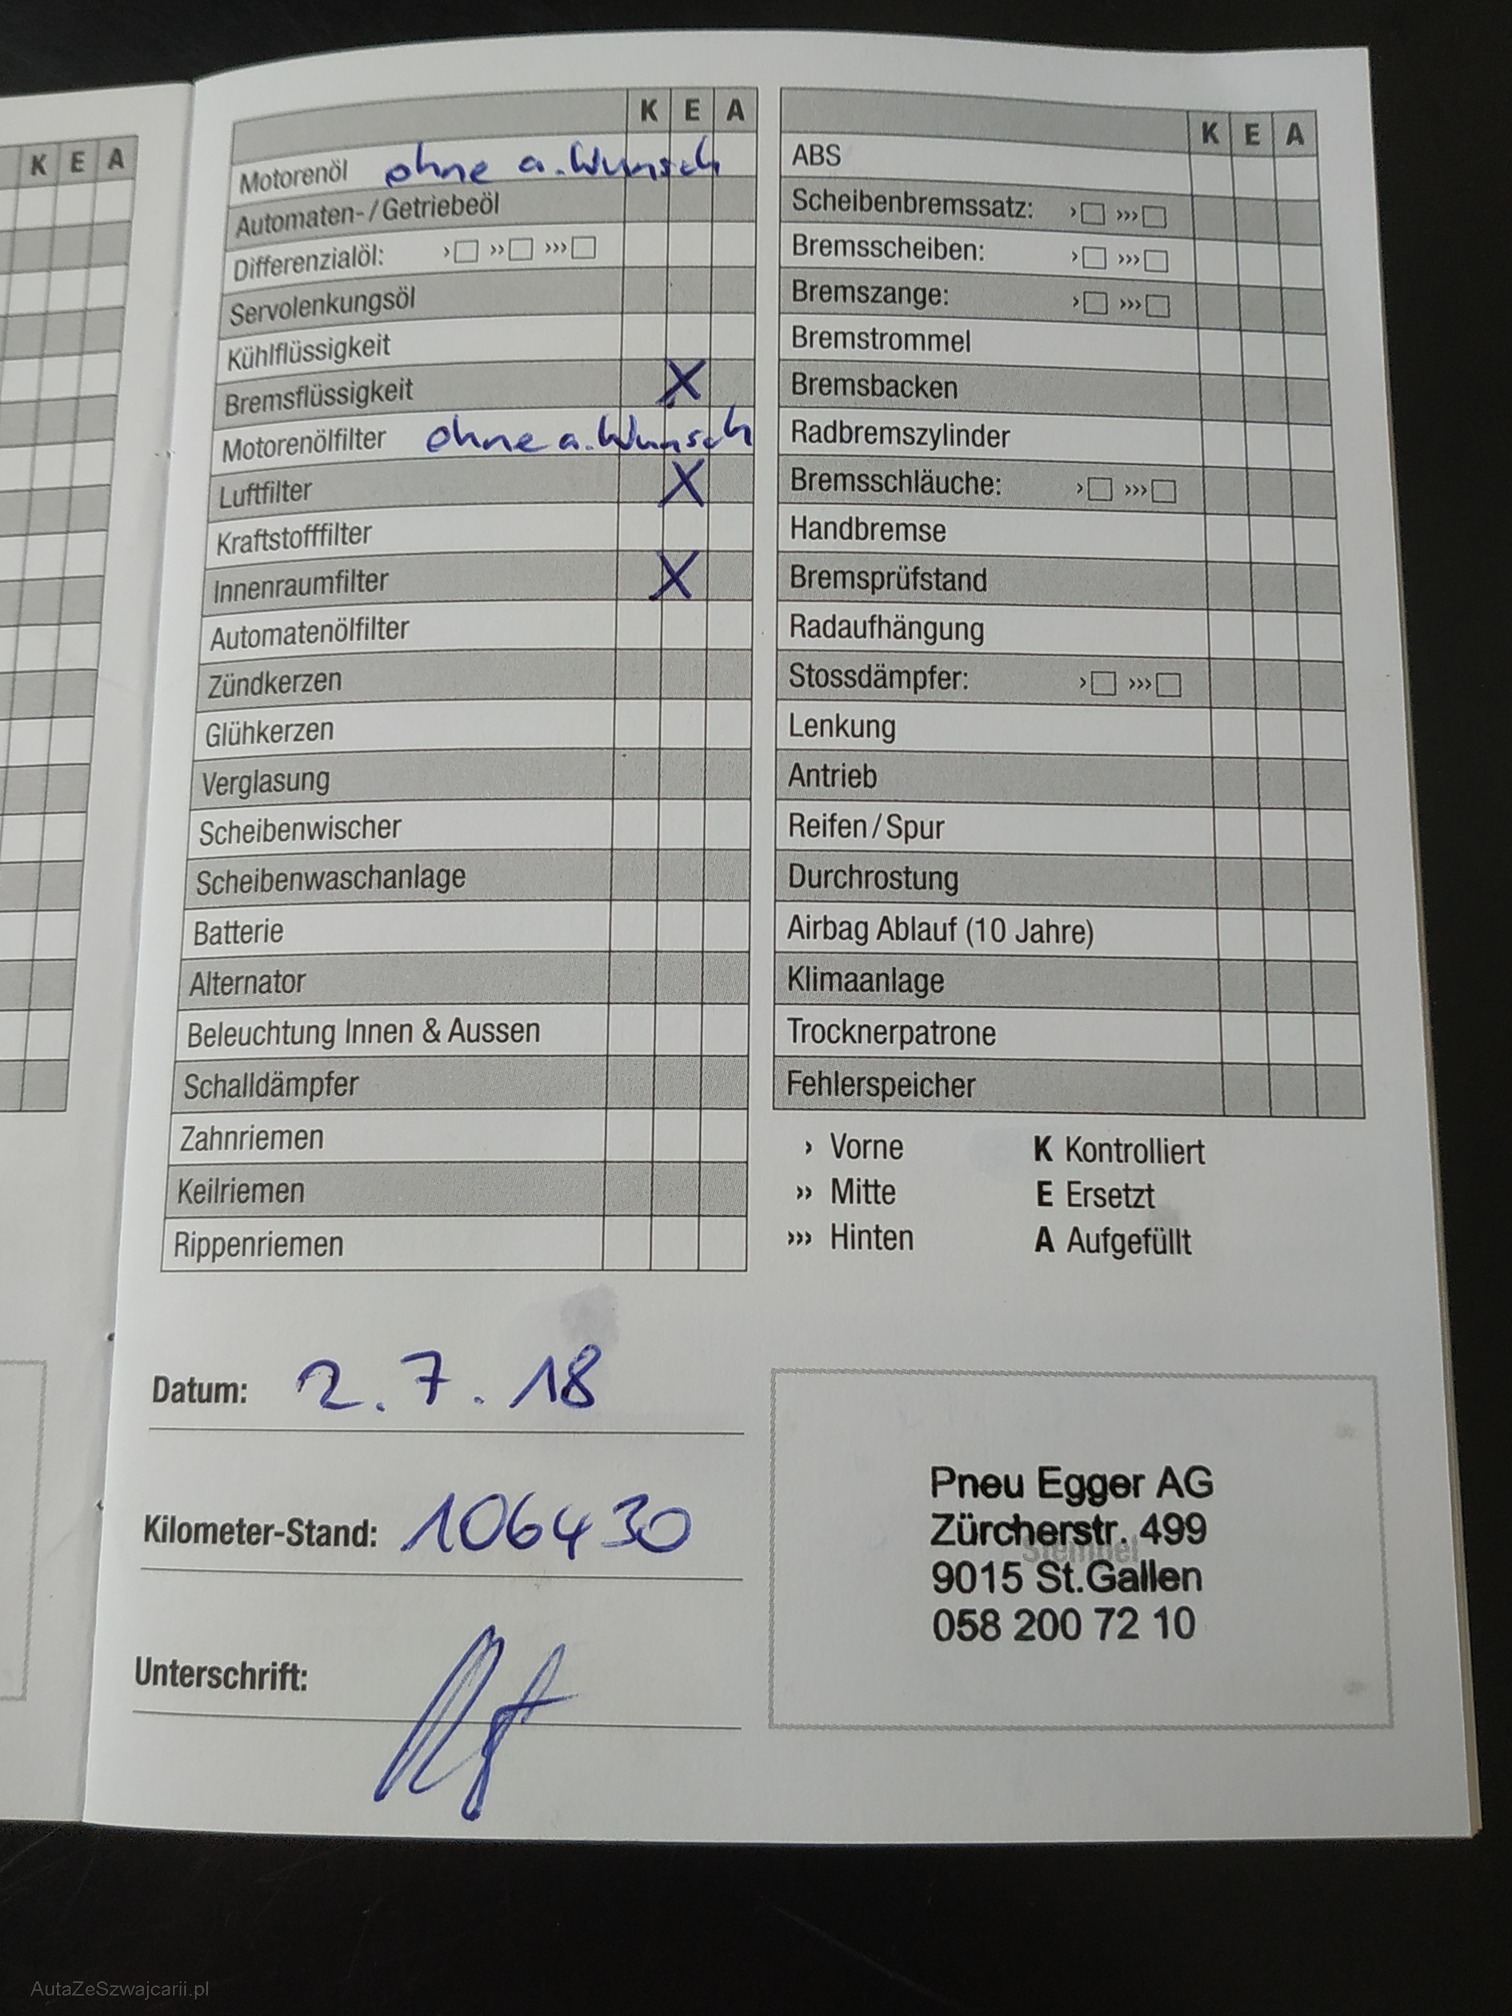 K E A
K E A
Motorenöl ohne a. Wunsch
Automaten-/Getriebeöl
Differenzialöl: › ›› ›››
Servolenkungsöl
Kühlflüssigkeit
Bremsflüssigkeit X
Motorenölfilter ohne a. Wunsch
Luftfilter X
Kraftstofffilter
Innenraumfilter X
Automatenölfilter
Zündkerzen
Glühkerzen
Verglasung
Scheibenwischer
Scheibenwaschanlage
Batterie
Alternator
Beleuchtung Innen & Aussen
Schalldämpfer
Zahnriemen
Keilriemen
Rippenriemen
K E A
ABS
Scheibenbremssatz: › ›››
Bremsscheiben: › ›››
Bremszange: › ›››
Bremstrommel
Bremsbacken
Radbremszylinder
Bremsschläuche: › ›››
Handbremse
Bremsprüfstand
Radaufhängung
Stossdämpfer: › ›››
Lenkung
Antrieb
Reifen/Spur
Durchrostung
Airbag Ablauf (10 Jahre)
Klimaanlage
Trocknerpatrone
Fehlerspeicher
› Vorne K Kontrolliert
›› Mitte E Ersetzt
››› Hinten A Aufgefüllt
Datum: 2.7.18
Kilometer-Stand: 106430
Unterschrift:
Pneu Egger AG
Zürcherstr. 499
Stempel
9015 St.Gallen
058 200 72 10
AutaZeSzwajcarii.pl